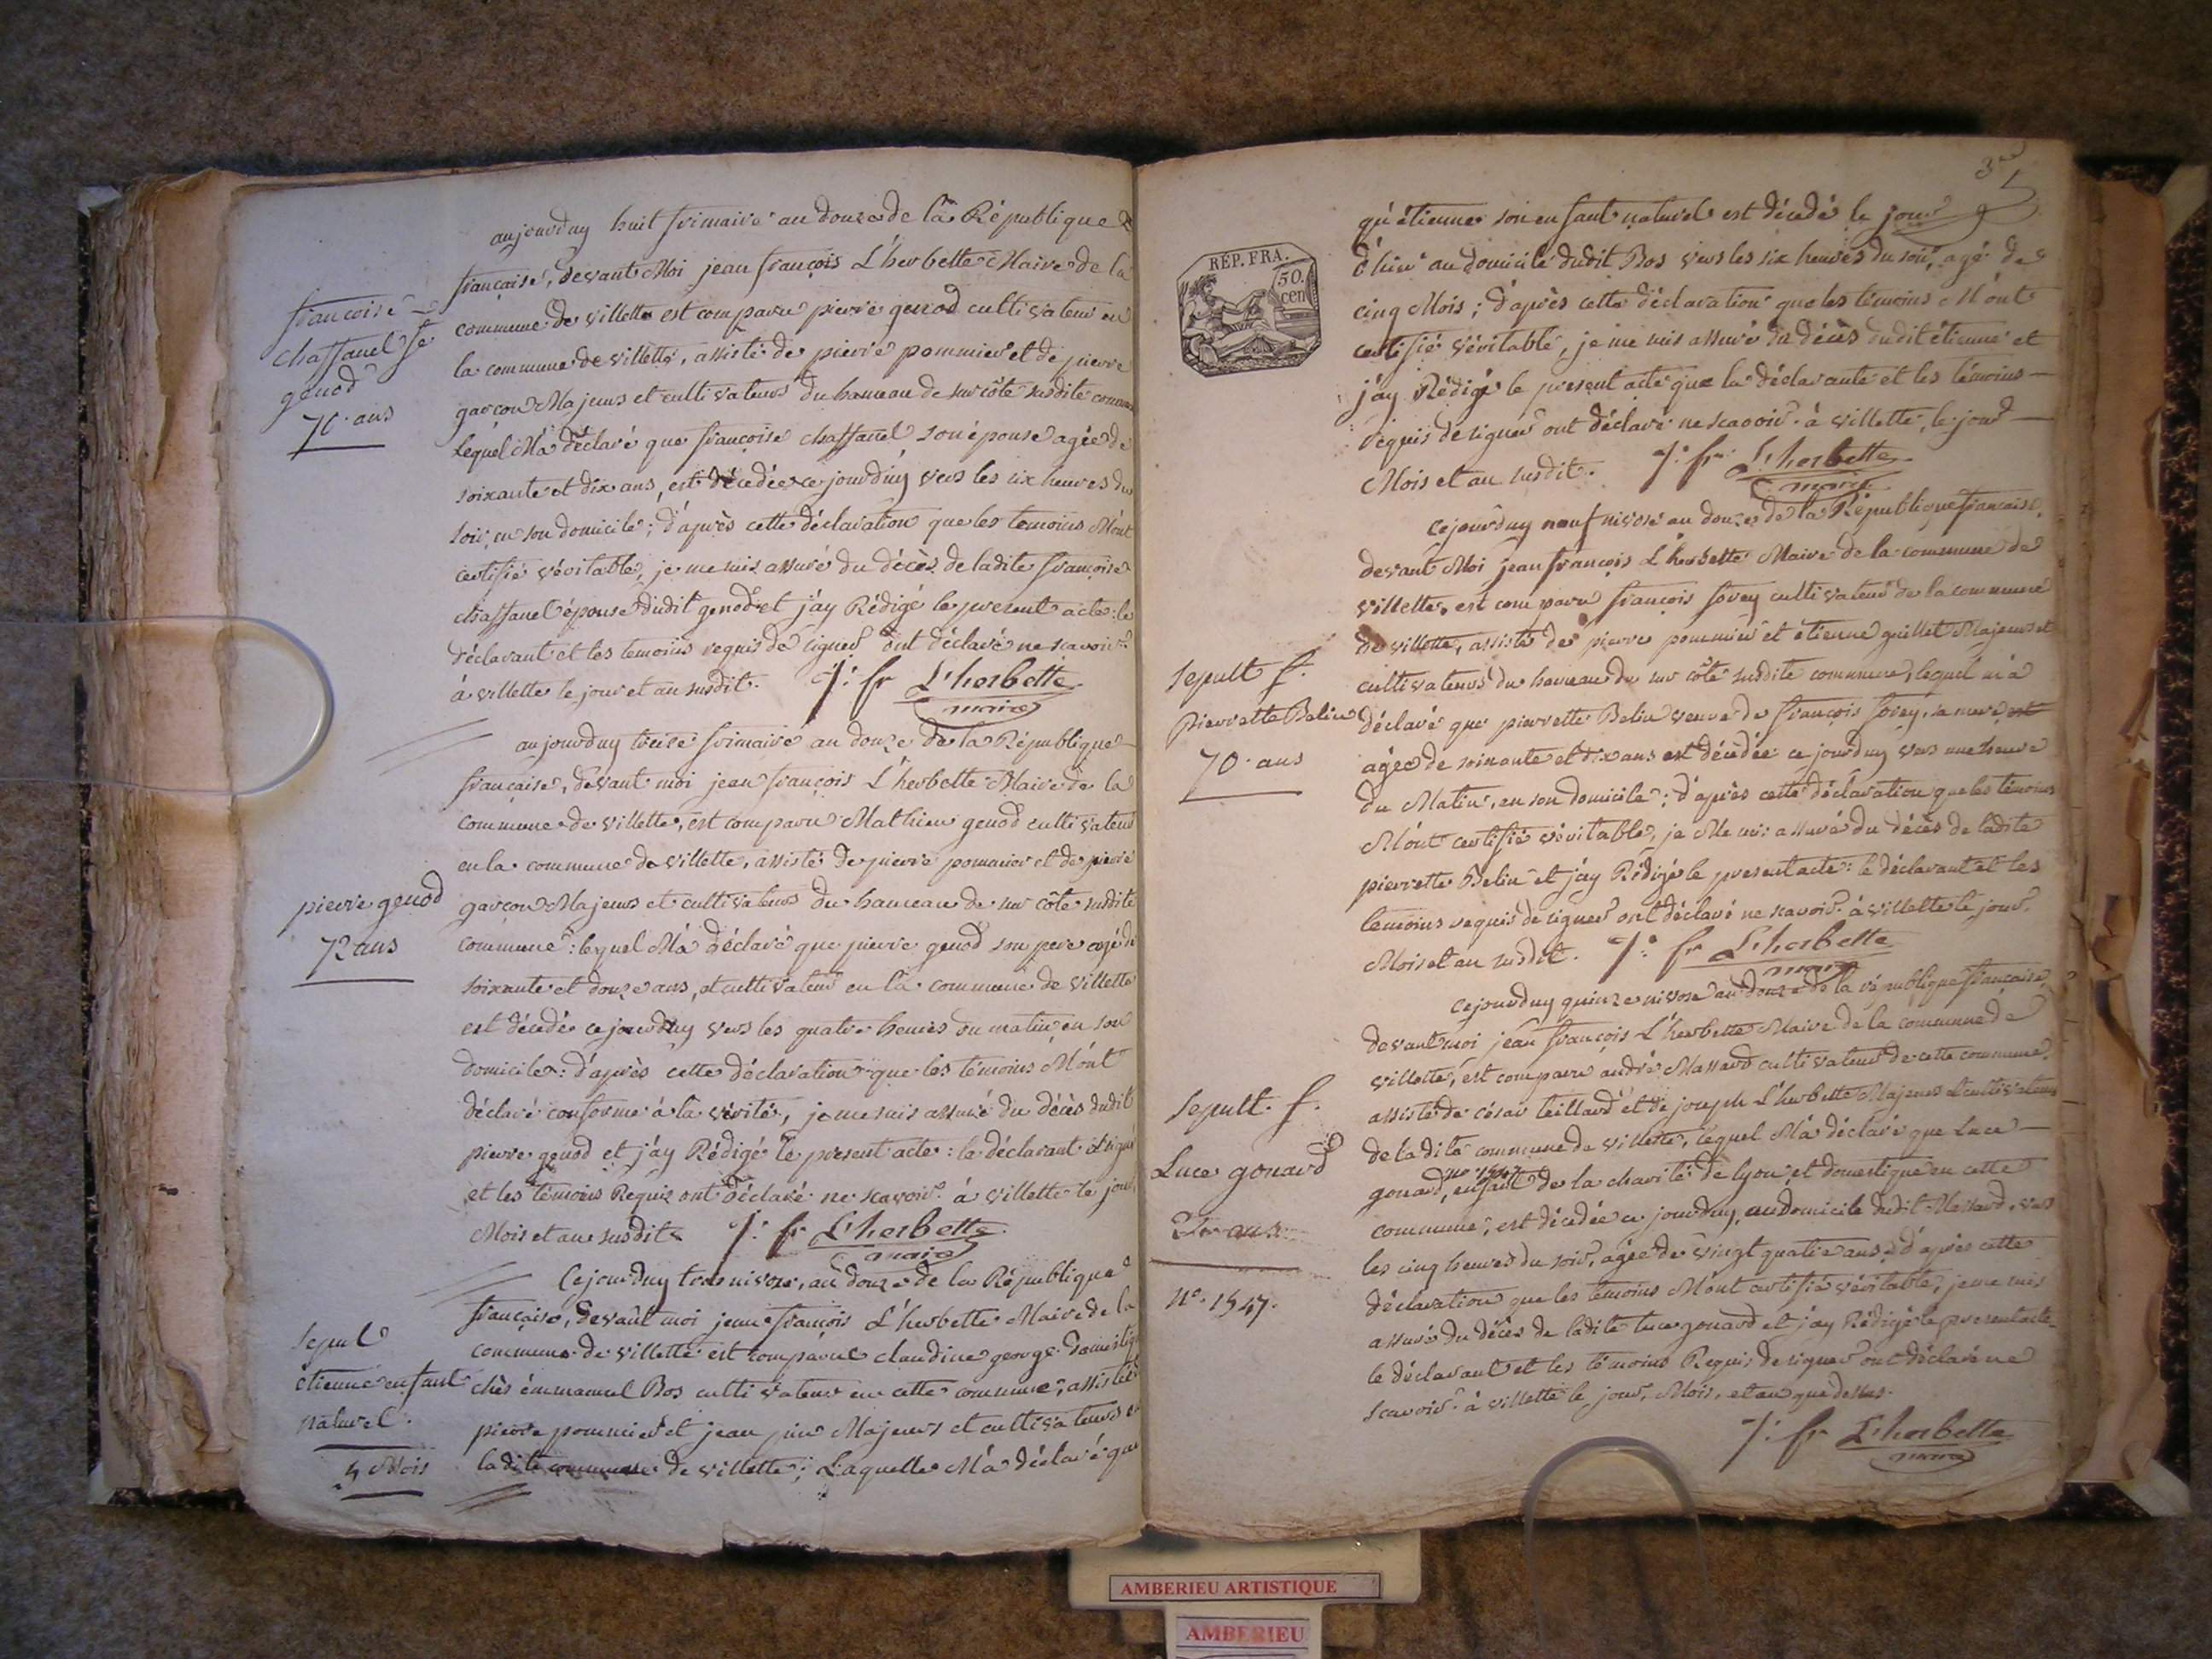 aujourduy huit frimaire an douze de la République
française, devant Moi jean françois L'herbette Maire de la
commune de villette est comparu pierre genod cultivateur en
la commune de villette, assisté de pierre pommier et de pierre
garçon Majeurs et cultivateurs du hameau de sur côte susdite commune
Lequel M'a déclaré que françoise chaffanel son épouse agée de
soixante et dix ans, est décédée ce jourduy vers les six heures du
soir, en son domicile; d'après cette déclaration que les temoins M'ont
certifié véritable, je me suis assuré du décès de ladite françoise
chaffanel épouse dudit genod et j'ay Rédigé le present acte: le
déclarant et les temoins requis de signer ont déclaré ne scavoir
à villette le jour et an susdit. J: fr L'herbette
maire
françoise
chaffanel fe
genod
70 ans
aujourduy treize frimaire an douze de la République
française, devant moi jean françois L'herbette Maire de la
commune de villette, est comparu Mathieu genod cultivateur
en la commune de villette, assisté de pierre pommier et de pierre
garçon Majeurs et cultivateurs du hameau de sur côte susdite
commune: lequel M'a déclaré que pierre genod son pere agé de
soixante et douze ans, et cultivateur en la commune de villette
est décédé ce jourduy vers les quatre heures du matin en son
domicile: d'après cette déclaration que les témoins M'ont
déclaré conforme à la vérité, je me suis assuré du décès dudit
pierre genod et j'ay Rédigé le present acte: le déclarant a signé
et les témoins Requis ont déclaré ne scavoir à villette le jour,
Mois et an susdit J: fr L'herbette
maire
pierre genod
72 ans
Cejourduy trois nivose, an douze de la République
française, devant moi jean françois L'herbette Maire de la
commune de villette est comparue claudine george domestique
chès émmanuel Bos cultivateur en cette commune, assistée
pierre pommier et jean Majeurs et cultivateurs en
ladite commune de villette; Laquelle M'a déclaré que
Sepul
étienne enfant
naturel.
5 Mois
3
REP. FRA.
50.
cen
qu'étienne son enfant naturel est décédé le jour
d'hier au domicile dudit Bos vers les six heures du soir, agé de
cinq Mois; d'après cette déclaration que les témoins M'ont
certifié véritable, je me suis assuré du décès dudit étienne et
j'ay Rédigé le present acte que la déclarante et les témoins
Requis de signer ont déclaré ne scavoir. à villette, le jour
Mois et an susdit. J: fr L'herbette
maire
Cejourduy neuf nivose an douze de la République française,
devant Moi jean françois L'herbette Maire de la commune de
villette, est comparu françois forey cultivateur de la commune
de villette, assisté de pierre pommier et étienne guillet Majeurs et
cultivateurs du hameau de sur côte susdite commune, lequel m'a
déclaré que pierrette Belin veuve de françois forey, sa mere est
agée de soixante et dix ans est décédée ce jourduy vers une heure
du Matin, en son domicile; d'après cette déclaration que les témoins
M'ont certifié véritable, je Me suis assuré du décès de ladite
pierrette Belin et j'ay Rédigé le present acte: le déclarant et les
temoins requis de signer ont déclaré ne scavoir à villette le jour.
Mois et an susdit. J: fr L'herbette
maire
Sepult f.
pierrette Belin
70 ans
Cejourduy quinze nivose an douze de la république française,
devant moi jean françois L'herbette Maire de la commune de
villette, est comparu andré Massard cultivateur de cette commune,
assisté de césar teillard et de joseph L'herbette Majeurs et cultivateurs
de ladite commune de villette, lequel M'a déclaré que Luce
gouard, no 1547 enfant de la charité de lyon, et domestique en cette
commune, est décédée ce jourduy, au domicile dudit Massard, vers
les cinq heures du soir, agée de vingt quatre ans, d'après cette
déclaration que les temoins M'ont certifié véritable, je me suis
assuré du décès de ladite luce gouard et j'ay Rédigé le present acte
le déclarant et les témoins Requis de signer ont déclaré ne
scavoir. à villette le jour, Mois, et an que dessus.
J: fr L'herbette
maire
Sepult. f.
Luce gouard
24 ans
No. 1547.
AMBERIEU ARTISTIQUE
AMBERIEU